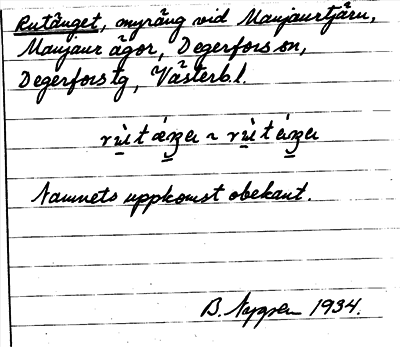 Rutänget, myräng vid Manjaurtjärn,
Manjaur ägor, Degerfors sn,
Degerfors tg, Västerb. l.
Namnets uppkomst obekant.
B. 1934.